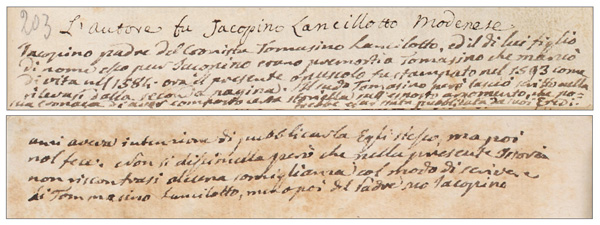 203
L'autore fu Jacopino Lancillotto Modenese
Jacopino padre del Cronista Tommasino Lancilotto, ed il di lui figlio
di nome esso pur Jacopino erano premorti a Tommasino che mancò
di vita nel 1554. ora il presente opuscolo fu stampato nel 1593 come
rilevasi dalla seconda pagina. Il sudo Tomasino però lasciò scritto nella
sua Cronaca di aver composto una storiella sull'esposto argomento, che
anni aveva intenzione di pubblicarla Egli stesso, ma poi
nol fece. Non si dissimula però che nella presente Istoria
non riscontrasi alcuna somiglianza col modo di scrivere
di Tommasino Lancilotto, ma o poi del Padre suo Jacopino